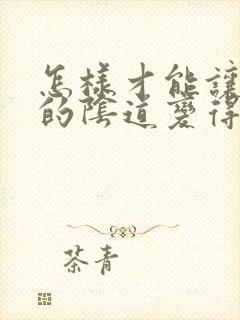 怎樣才能讓
的陰道變得
茶青